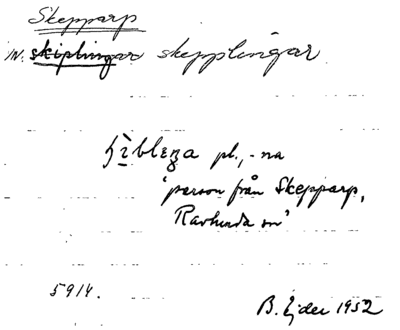 Skepparp
IN. skiplingar skepplingar
pl., -na
'person från Skepparp,
Ravlunda sn'
5914.
B. Ejder 1952